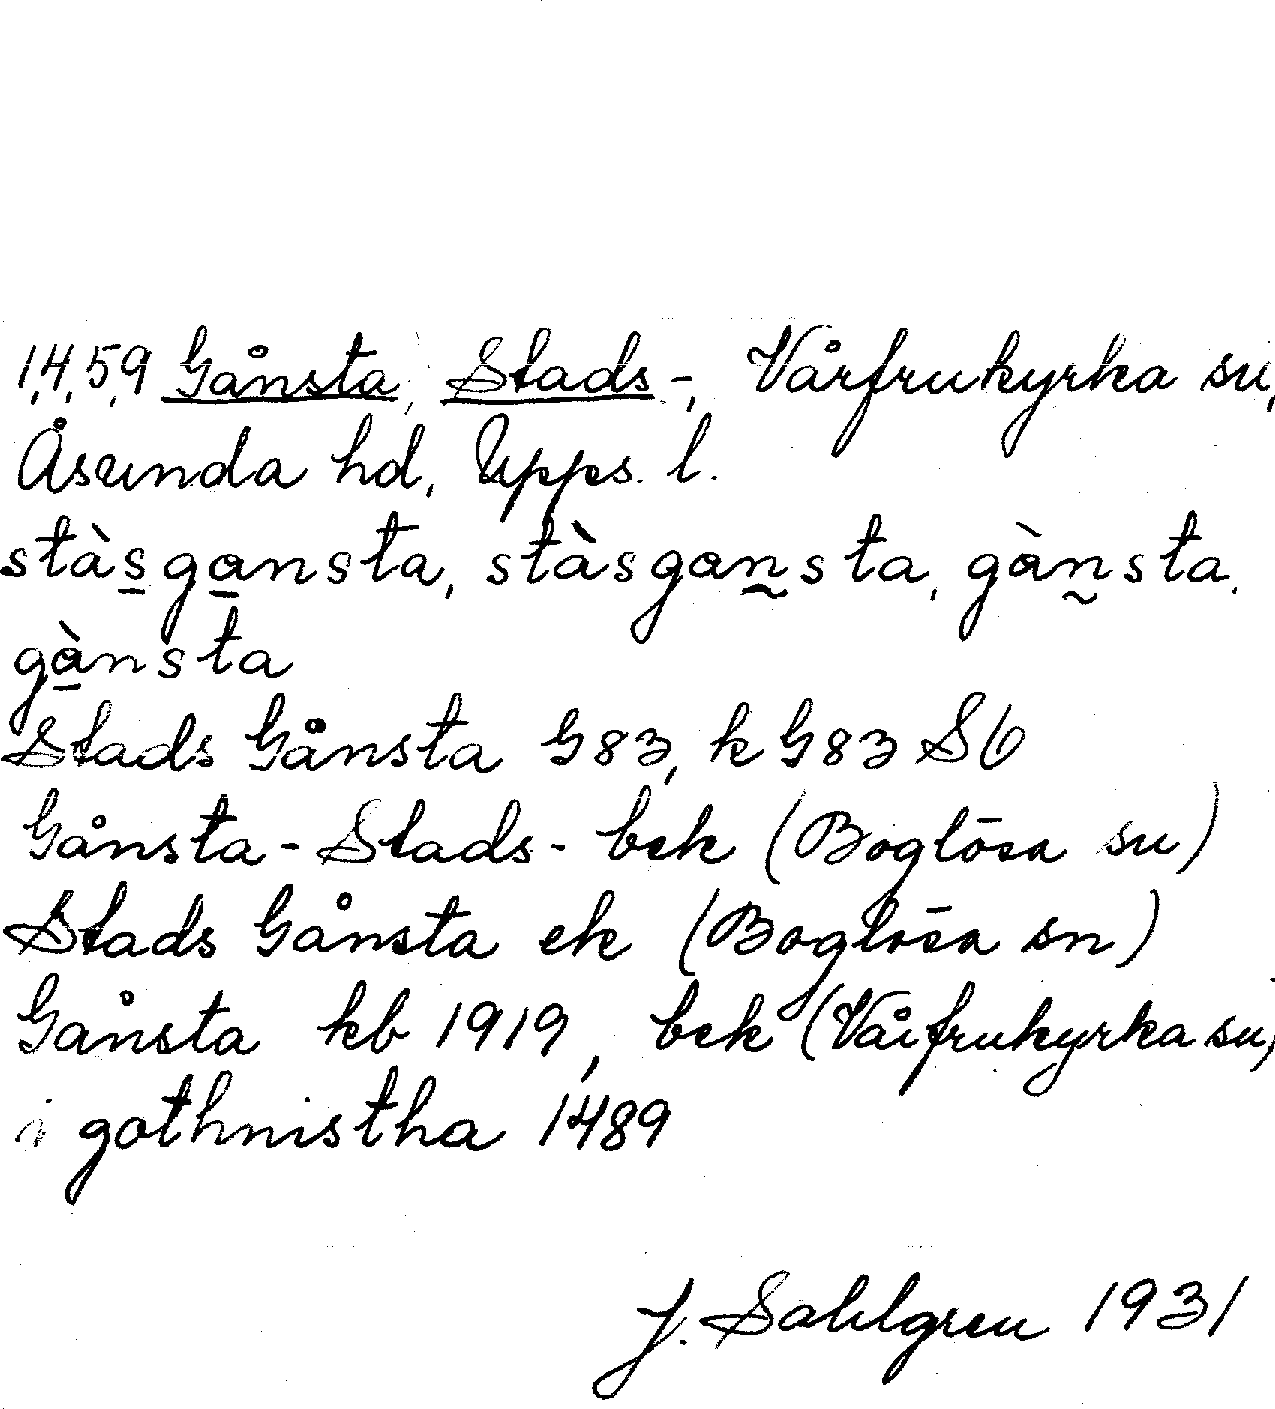 1,4,5,9 Gånsta, Stads-, Vårfrukyrka sn,
Åsunda hd, Upps. l.
stàsgansta, stàsgansta, gànsta,
gànsta
Stads Gånsta G83, k G83 S6
Gånsta-Stads- bek (Boglösa sn)
Stads Gånsta ek (Boglösa sn)
Gånsta kb 1919, bek (Vårfrukyrka sn)
i gothnistha 1489
J. Sahlgren 1931